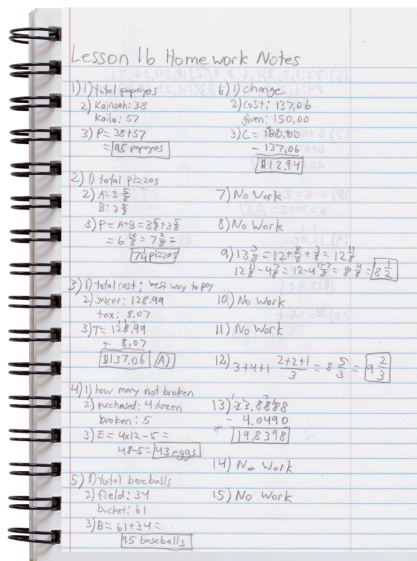 Lesson 16 Homework Notes
1) 1) total papayas
2) Kainoah: 38
Kaila: 57
3) P = 38+57
= 95 papayas
2) 1) total pizzas
2) A: 3 5/8
B: 3 5/8
3) P = A+B = 3 5/8 + 3 5/8
= 6 10/8 = 7 2/8 =
7 1/4 pizzas
3) 1) total cost; best way to pay
2) juicer: 128.99
tax: 8.07
3) T = 128.99
+ 8.07
$137.06 (A)
4) 1) how many not broken
2) purchased: 4 dozen
broken: 5
3) E = 4x12-5 =
48-5 = 43 eggs
5) 1) total baseballs
2) field: 34
bucket: 61
3) B = 61+34 =
95 baseballs
6) 1) change
2) cost: 137.06
given: 150.00
3) C = 150.00
- 137.06
$12.94
7) No Work
8) No Work
9) 13 3/8 = 12 + 8/8 + 3/8 = 12 11/8
12 11/8 - 4 7/8 = 12-4 = 8 4/8 = 8 1/2
10) No Work
11) No Work
12) 3+4+1 2+2+1/3 = 8 5/3 = 9 2/3
13) 23.8888
- 4.0490
19.8398
14) No Work
15) No Work